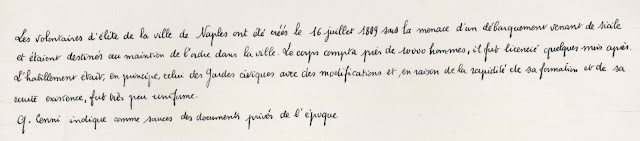 Les volontaires d'élite de la ville de Naples ont été créés le 16 juillet 1809 sous la menace d'un débarquement venant de Sicile
et étaient destinés au maintien de l'ordre dans la ville. Le corps compta près de 10000 hommes, il fut licencié quelques mois après.
L'habillement était, en principe, celui des Gardes civiques avec des modifications et, en raison de la rapidité de sa formation et de sa
courte existence, fut très peu uniforme.
Q. Cenni indique comme sources des documents privés de l'époque